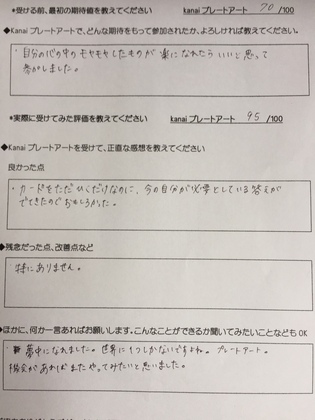 *受ける前、最初の期待値を教えてください kanai プレートアート 70 /100
◆Kanai プレートアートで、どんな期待をもって参加されたか、よろしければ教えてください。
・自分の心の中のモヤモヤしたものが楽になれたらいいと思って
参加しました。
*実際に受けてみた評価を教えてください kanai プレートアート 95 /100
◆Kanai プレートアートを受けて、正直な感想を教えてください
良かった点
・カードをただひくだけなのに、今の自分が必要としている答えが
でてきたのでおもしろかった。
◆残念だった点、改善点など
特にありません。
◆ほかに、何か一言あればお願いします。こんなことができるか聞いてみたいことなどもOK
・夢中になれました。世界に1つしかないですよね。プレートアート。
機会があればまたやってみたいと思いました。